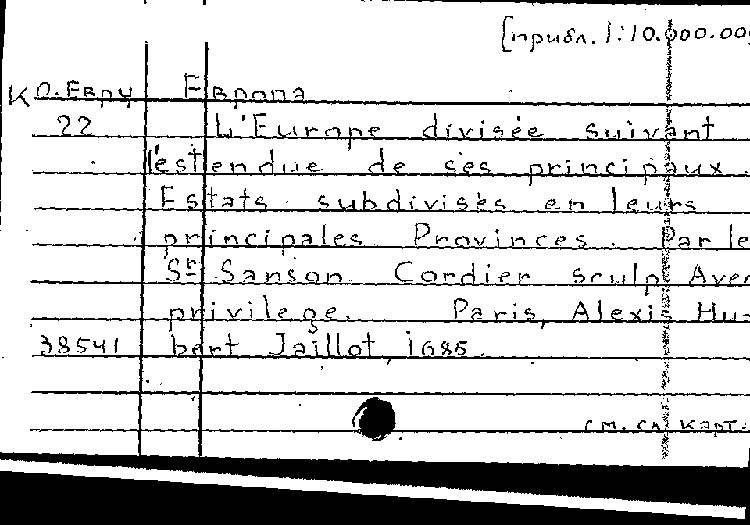 [прибл. 1:10.000.000
К О.Евру Европа
22 L'Europe divisée suivant
l'estendue de ses principaux
Estats subdivisés en leurs
principales Provinces. Par le
Sr Sanson Cordier sculp Avec
privilege. Paris, Alexis Hu-
38541 bert Jaillot, 1685
см. сл. карт.